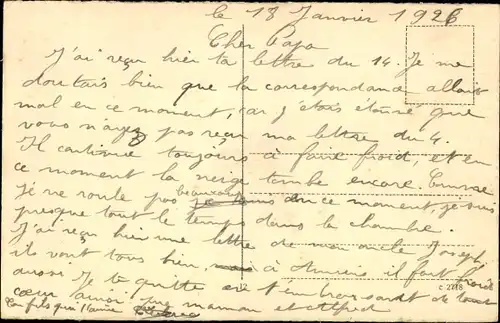 le 18 Janvier 1926
Cher Papa
J'ai reçu hier ta lettre du 14. Je me
doutais bien que la correspondance allait
mal en ce moment, car j'étais étonné que
vous n'ayez pas reçu ma lettre du 4.
Il continue toujours à faire froid, et en
ce moment la neige tombe encore. Aussi
je ne roule pas beaucoup en ce moment, je suis
presque tout le temps dans la chambre.
J'ai reçu hier une lettre de mon oncle Joseph
ils vont tous bien, à il fait froid
aussi. Je te quitte en t'embrassant de tout
cœur ainsi que maman et Alfred
Ton fils qui t'aime
c 2718